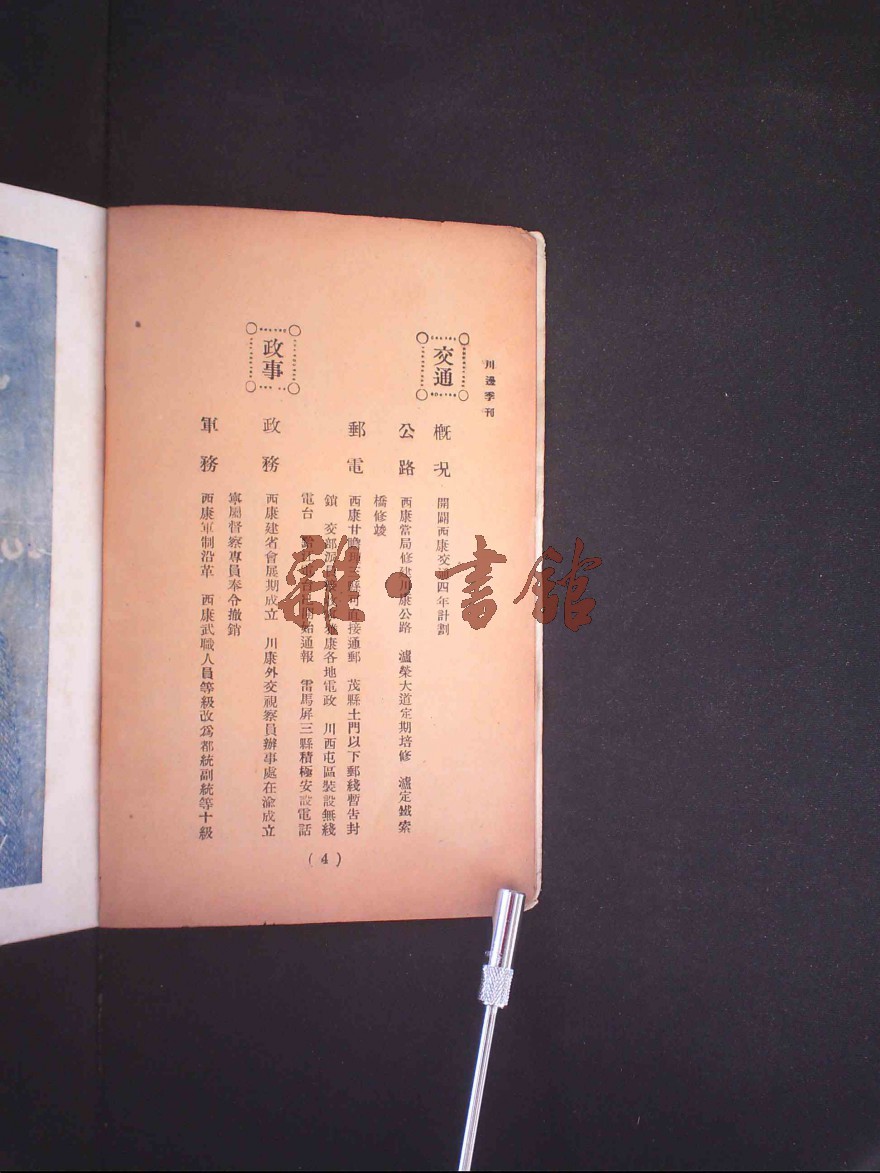 川邊季刊
交通
概况　開闢西康交通四年計劃
公路　西康當局修建川康公路　瀘榮大道定期培修　瀘定鐵索
橋修竣
郵電　西康甘瞻　直接通郵　茂縣土門以下郵綫暫告封
鎖　交部派　康各地電政　川西屯區裝設無綫
電台　始通報　雷馬屏三縣積極安設電話
政事
政務　西康建省會展期成立　川康外交視察員辦事處在渝成立
寧屬督察專員奉令撤銷
軍務　西康軍制沿革　西康武職人員等級改爲都統副統等十級
(4)
雜·書館